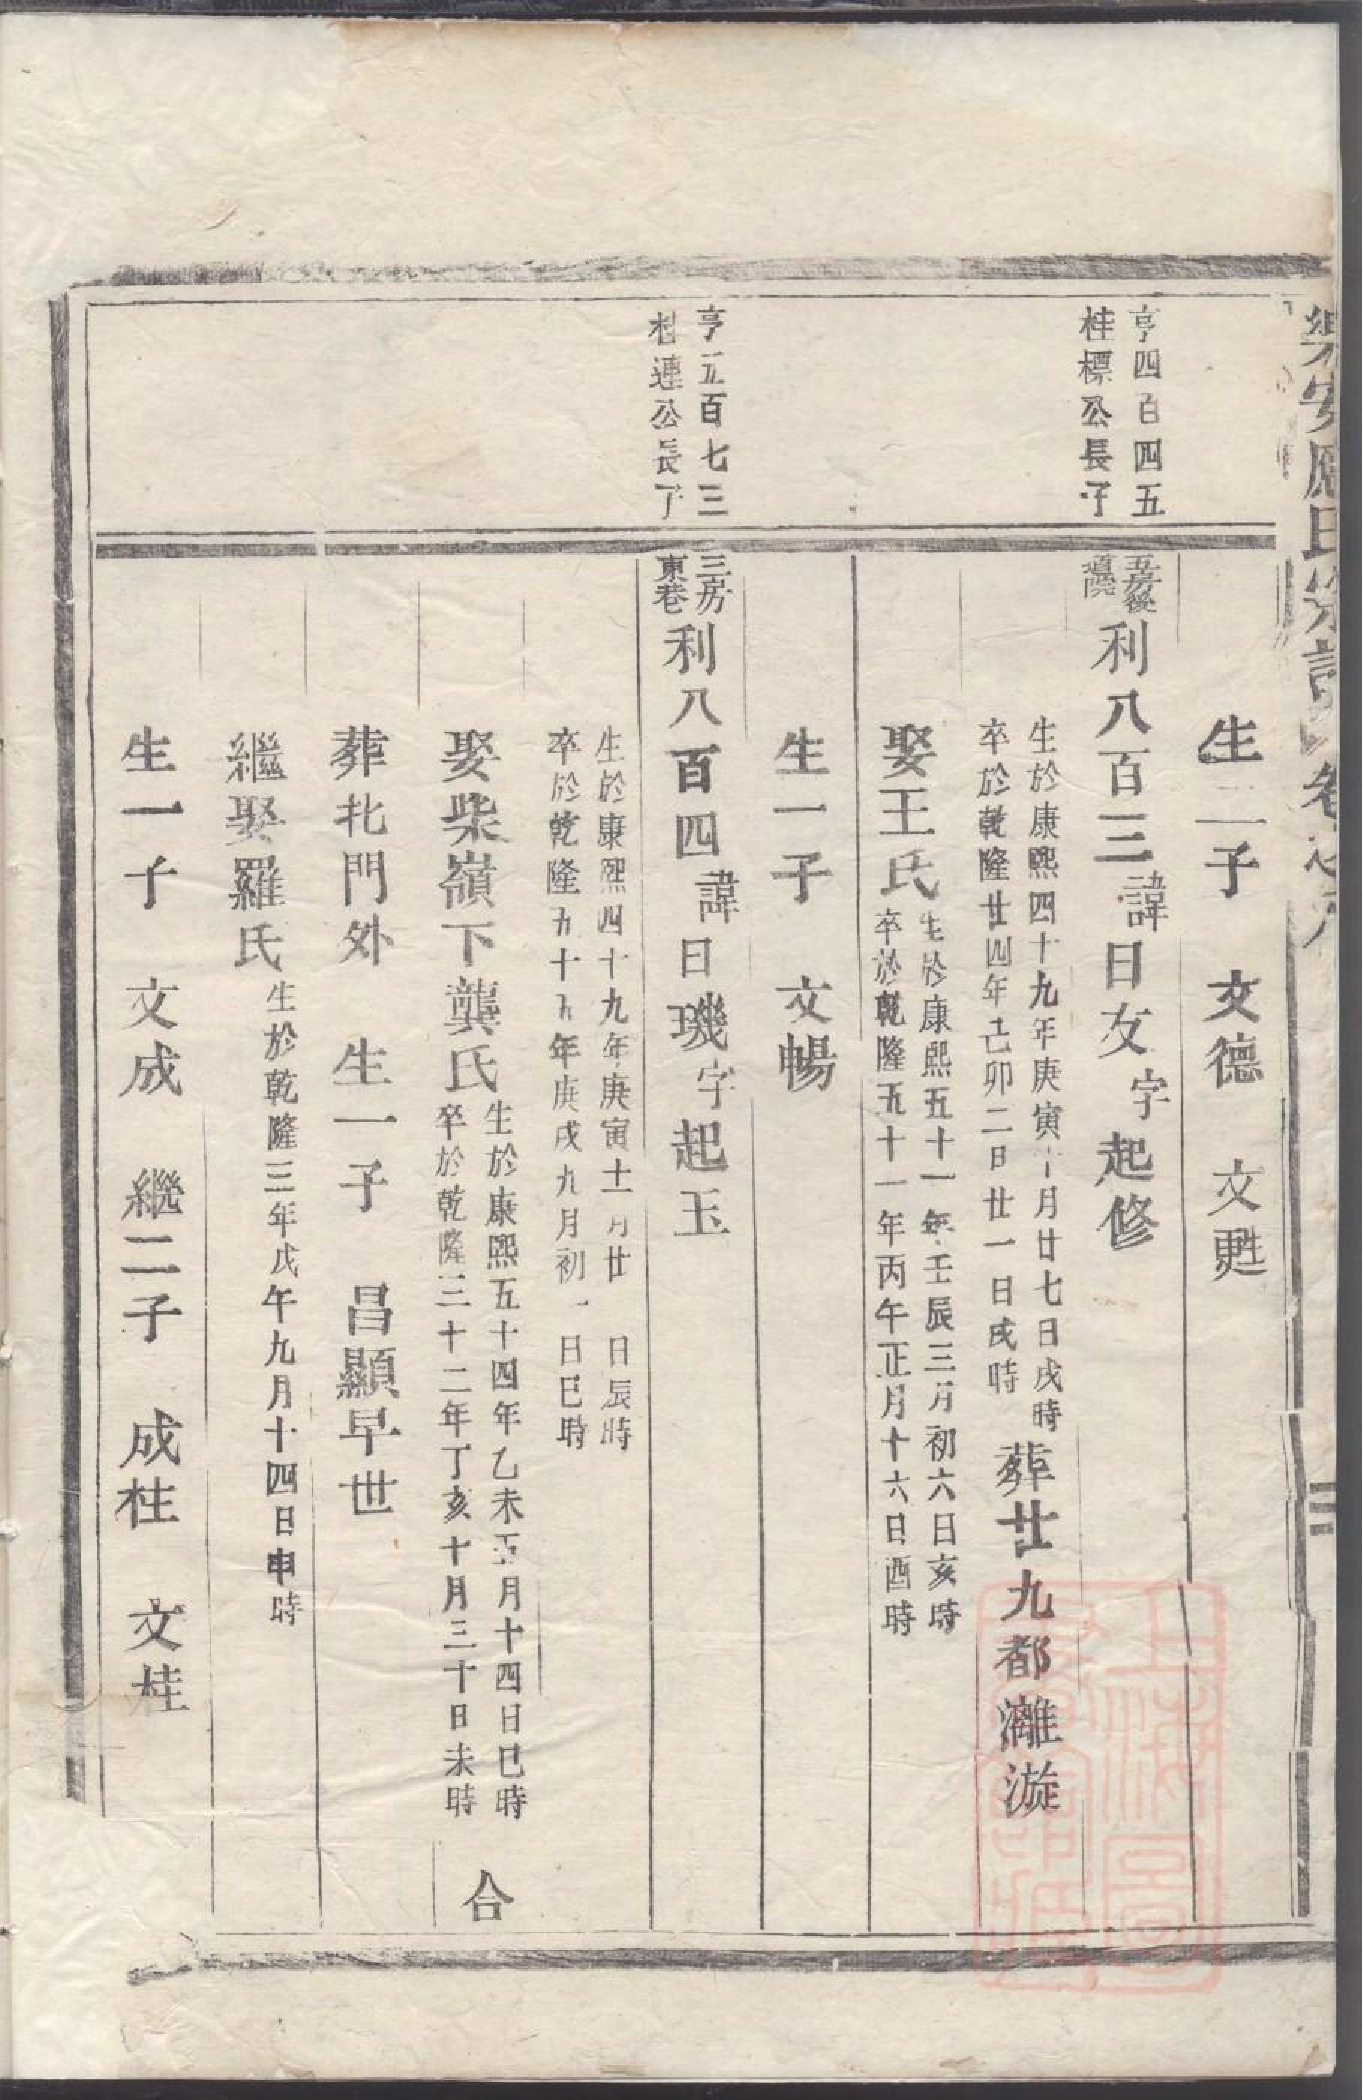 生二子　文德　文甦
亨四百四五
桂標公長子
五房後
利八百三諱曰友字起修
生於康熙四十九年庚寅十月廿七日戌時
卒於乾隆廿四年己卯二日廿一日戌時
葬廿九都灕漩
娶王氏
生於康熙五十一年壬辰三月初六日亥時
卒於乾隆五十一年丙午正月十六日酉時
生一子　文暢
亨五百七三
連公長子
三房
東巷
利八百四諱曰璣字起玉
生於康熙四十九年庚寅十一月廿　日辰時
卒於乾隆五十五年庚戌九月初一日巳時
娶柴嶺下龔氏
生於康熙五十四年乙未五月十四日巳時
卒於乾隆三十二年丁亥十月三十日未時
合
葬北門外　生一子　昌顯早世
繼娶羅氏
生於乾隆三年戊午九月十四日申時
生一子　文成　繼二子　成桂　文桂